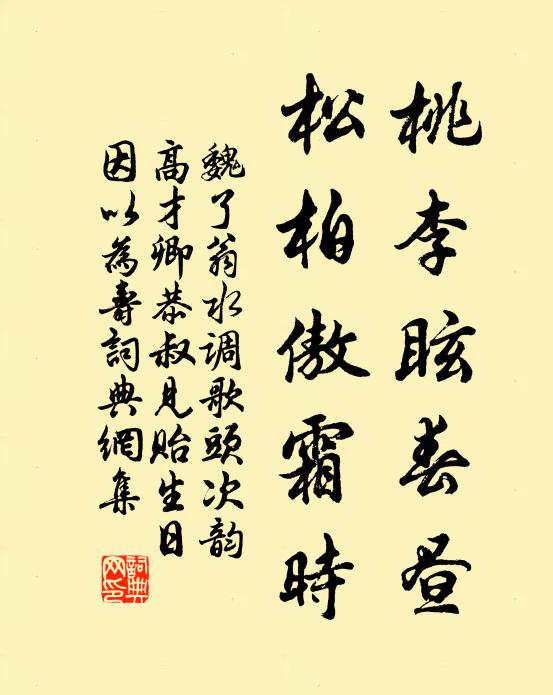 桃李眩春昼
松柏傲霜時
魏了翁水调歌頭次韵
高才卿恭叔見贻生日
因以為壽詞典網集
詞典
网印